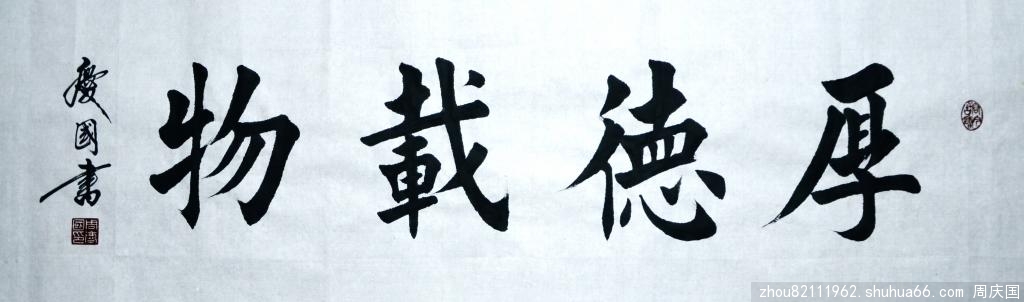 厚德載物
慶國書
zhou82111962.shuhua66.com 周庆国